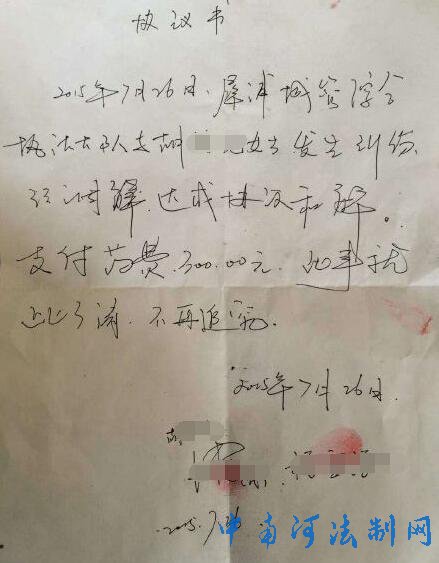 协议书
2015年7月26日,犀浦城管综合
执法大队与胡 女士发生纠纷,
经调解,达成协议和解。
支付药费300.00元.此事就
此了清.不再追究.
2015年7月26日.
2015.7.26.
中南河法制网